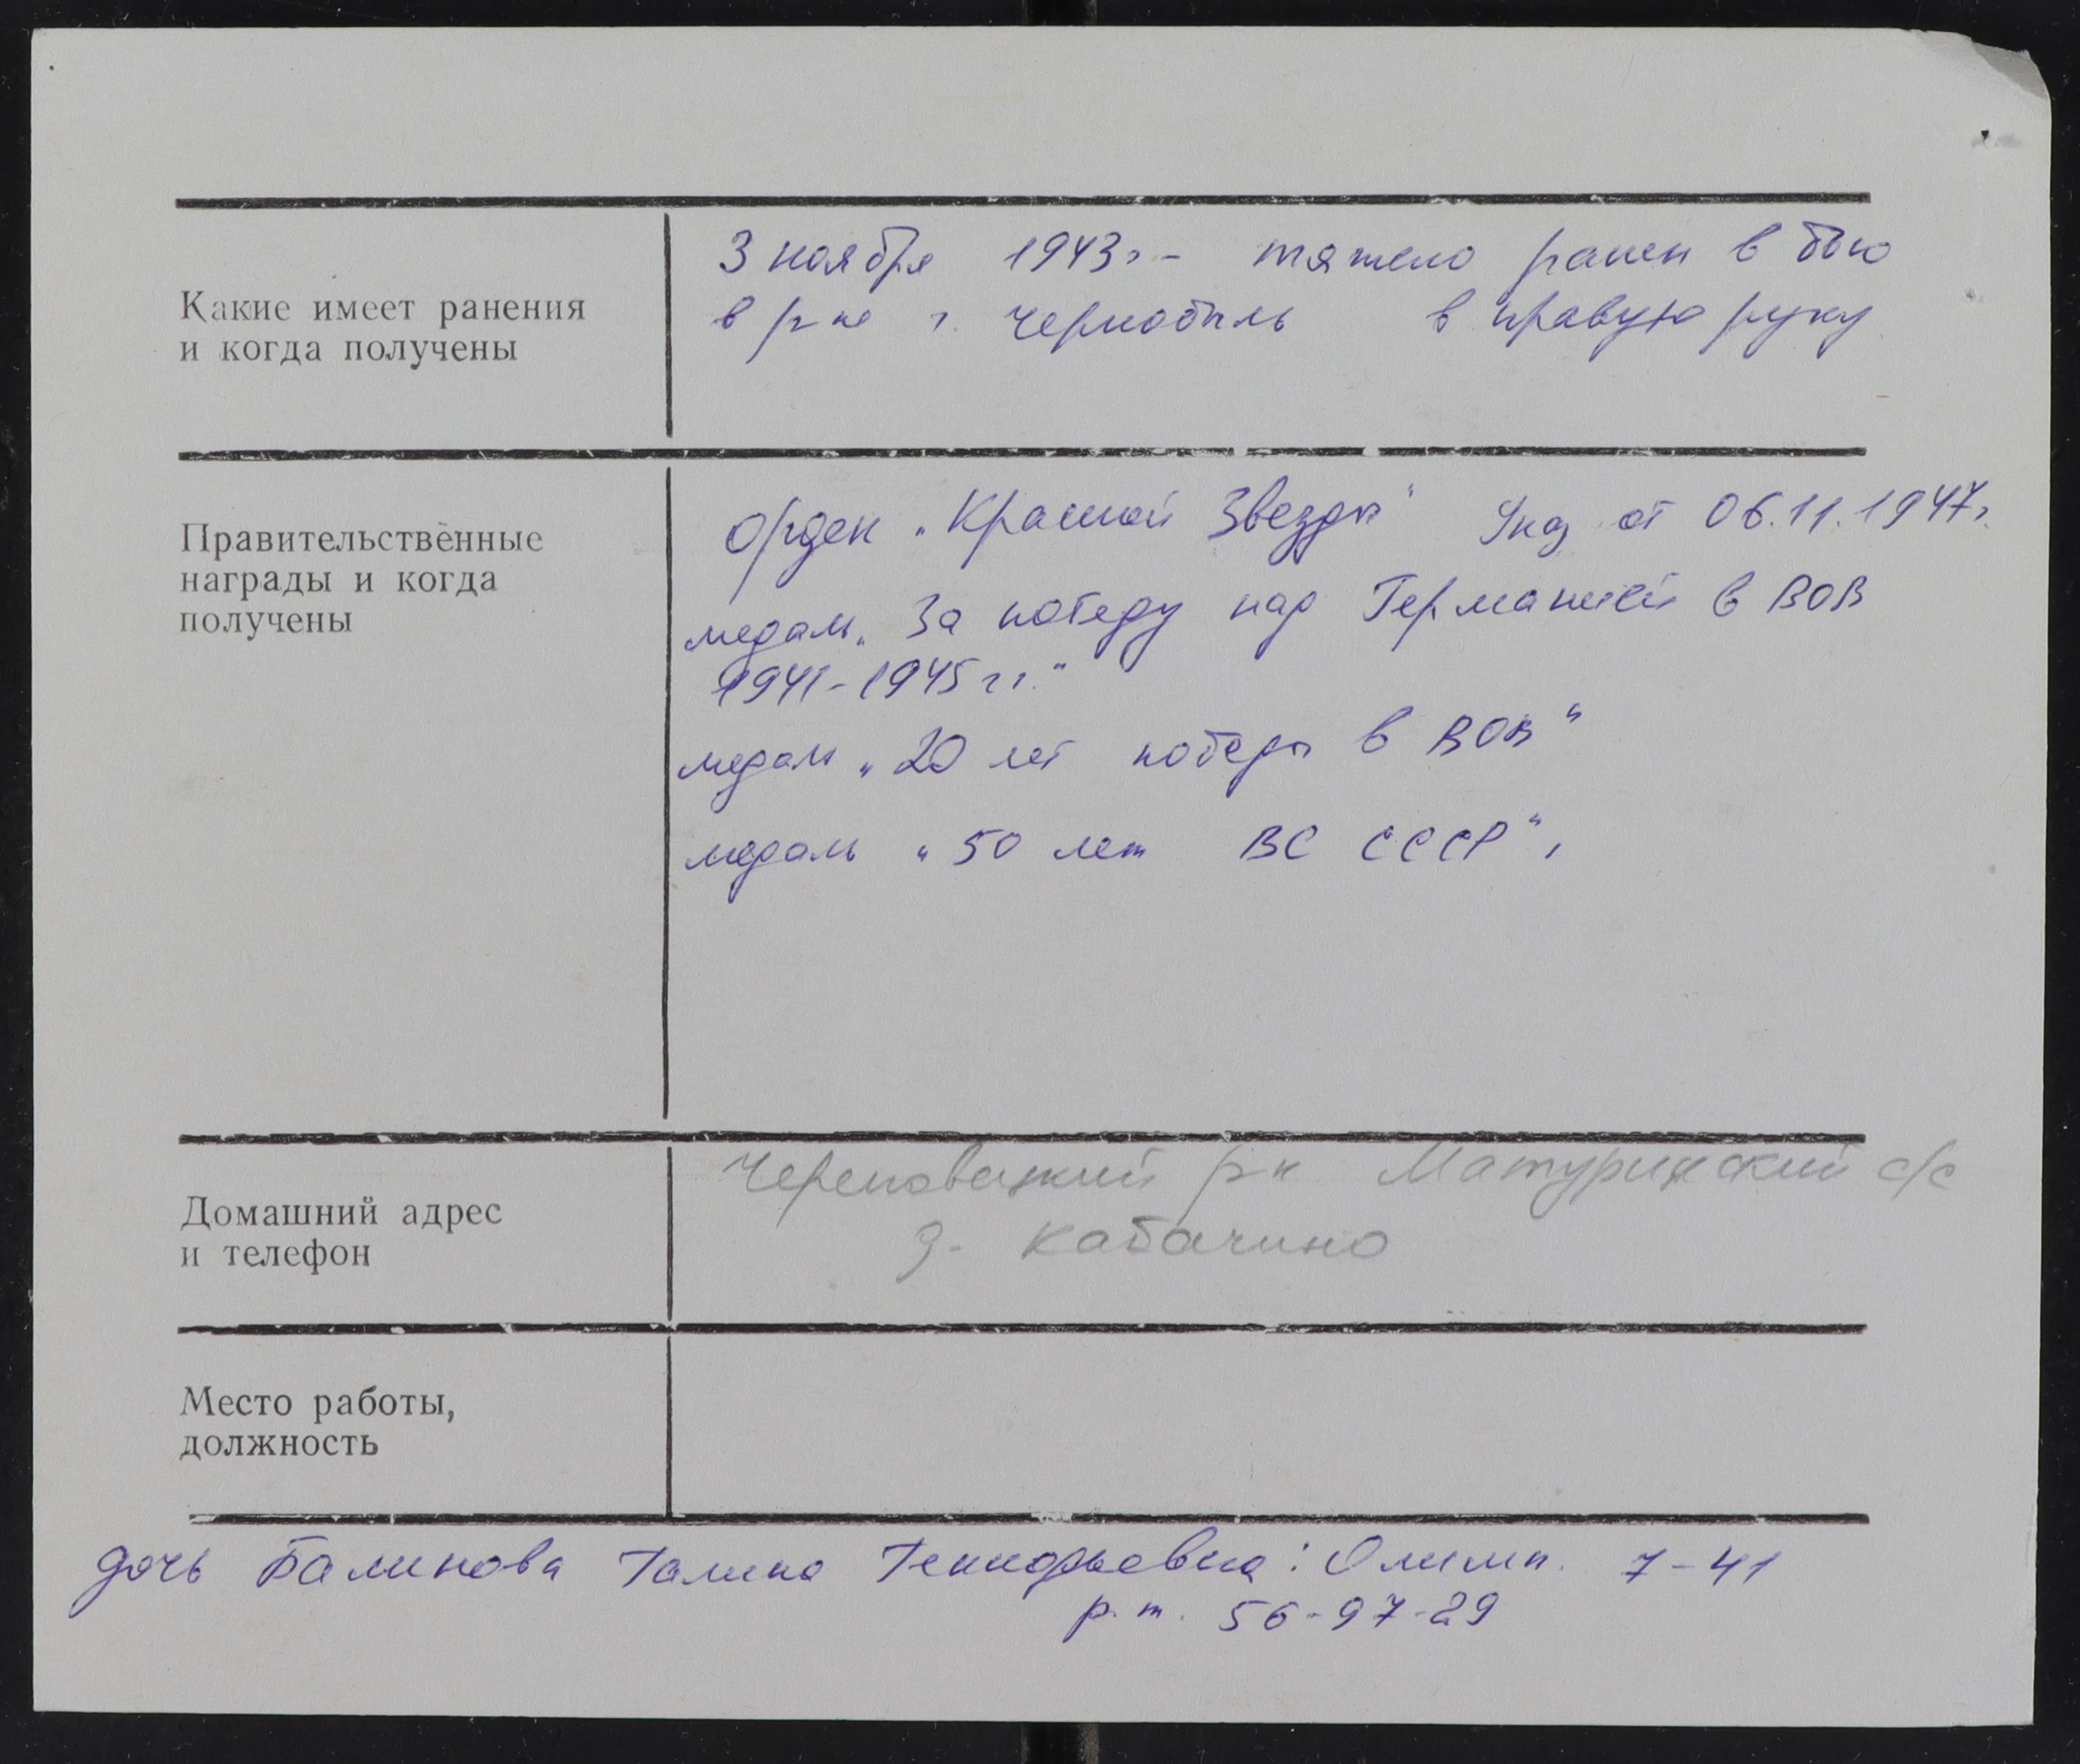 Какие имеет ранения
и когда получены
3 ноября 1943г - тяжело ранен в бою
в р-не г. Чернобыль в правую руку
Правительственные
награды и когда
получены
Орден „Красной Звезды" Указ от 06.11.1947г.
медаль „За победу над Германией в ВОВ
1941-1945 гг."
медаль „20 лет победы в ВОВ"
медаль „50 лет ВС СССР",
Домашний адрес
и телефон
Череповецкий р-н Матуринский с/с
д. Кабачино
Место работы,
должность
дочь Балинова Галина Геннадьевна: Олимп. 7-41
р.т. 56-97-29